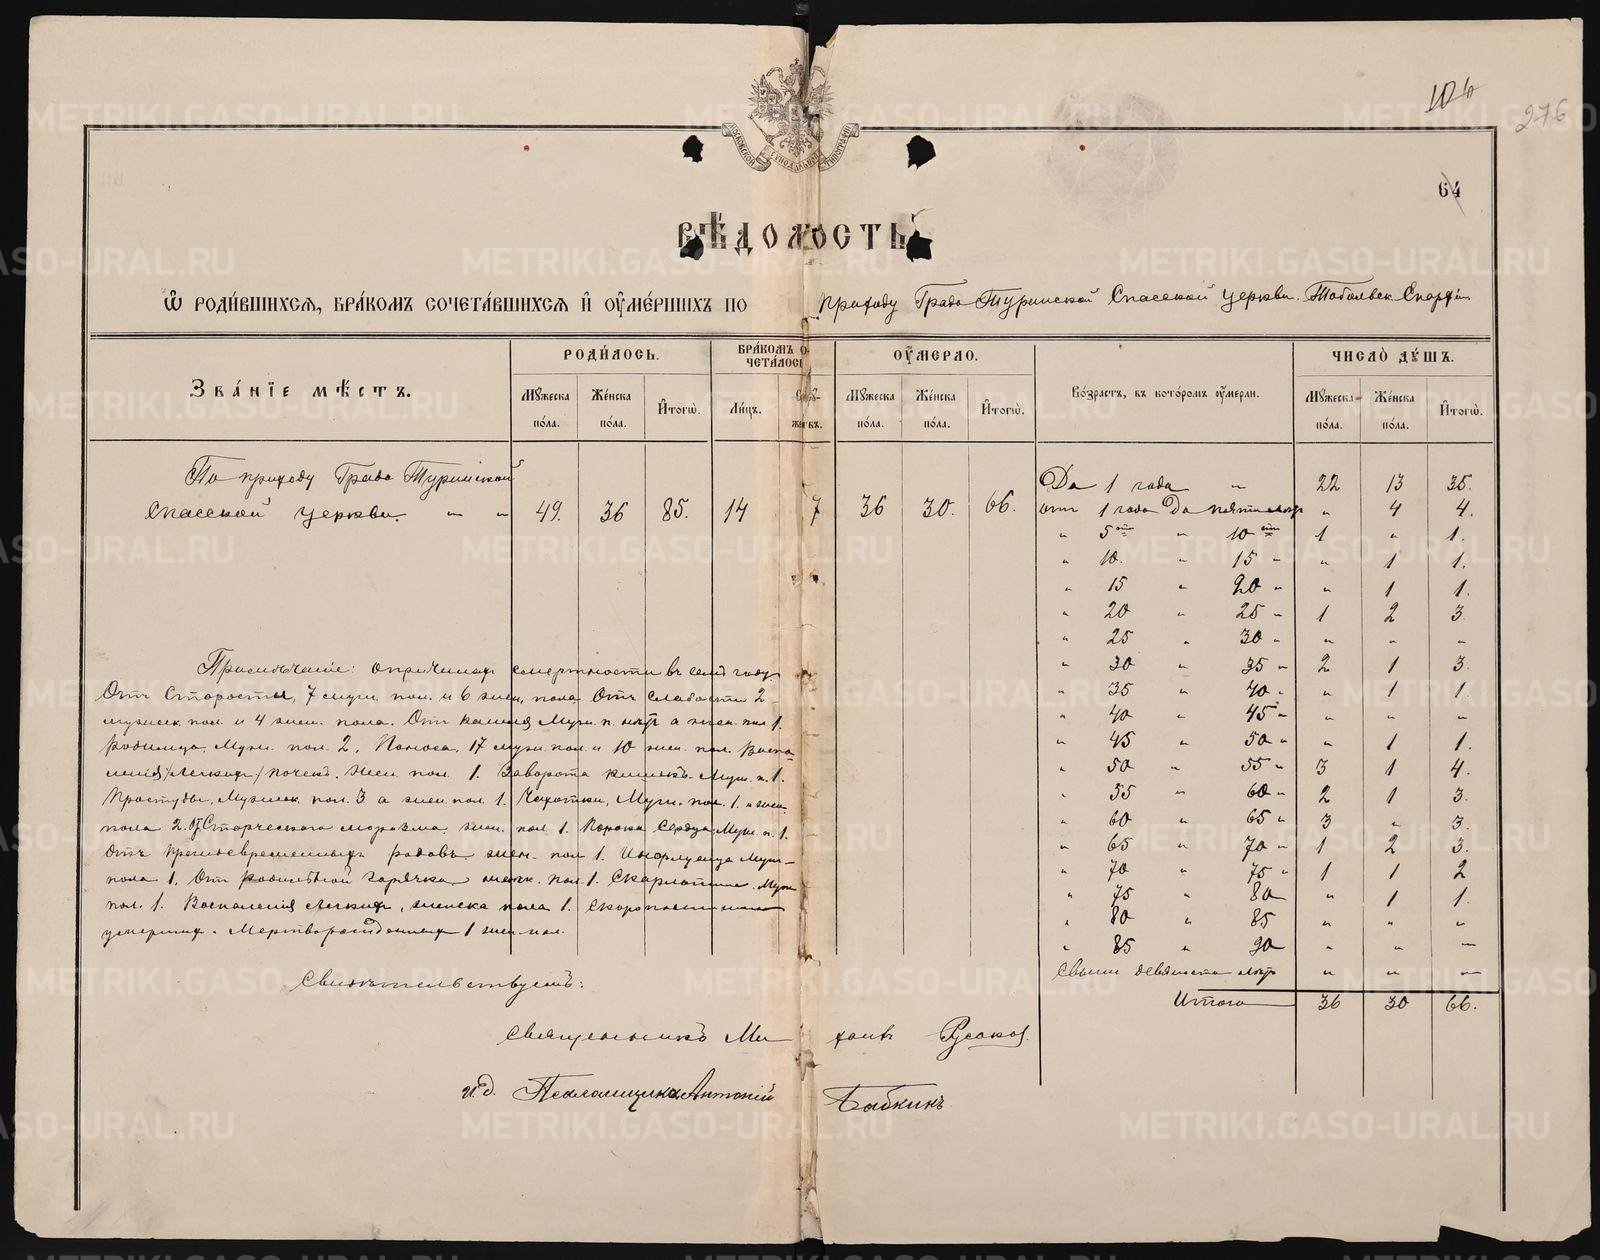 104
276
МОСКОВСКОЙ СѴНОДАЛЬНОЙ ТИПОГРАФІИ
64
ВѢДОМОСТЬ
Ѡ РОДИ́ВШИХСѦ, БРА́КОМЪ СОЧЕТА́ВШИХСѦ И҆ ОУ҆МЕ́РШИХЪ ПО приходу Градо Туринской Спасской церкви Тобольск. Епархіи
ЗВА́НЇЕ МѢ́СТЪ.
РОДИ́ЛОСЬ.
Мꙋ́жеска по́ла.
Же́нска по́ла.
И҆того̀.
БРА́КОМЪ СОЧЕТА́ЛОСЬ
Ли́цъ.
Сꙋпрꙋ́жествъ.
ОУ҆́МЕРЛО.
Мꙋ́жеска по́ла.
Же́нска по́ла.
И҆того̀.
Во́зрастъ, въ кото́ромъ оу҆́мерли.
ЧИСЛО̀ ДꙊ́ШЪ.
Мꙋ́жеска по́ла.
Же́нска по́ла.
И҆того̀.
По приходу Градо Туринской
Спасской церкви. " " 49. 36 85. 14 7 36 30. 66.
До 1 года " 22 13 35.
отъ 1 года До пяти лѣтъ " 4 4.
" 5 ти " 10 ти 1 " 1.
" 10. " 15 " " 1 1.
" 15 " 20 " " 1 1.
" 20 " 25 " 1 2 3
" 25 " 30 " " " "
" 30 " 35 " 2 1 3.
" 35 " 40 " " 1 1.
" 40 " 45 " " " "
" 45 " 50 " " 1 1.
" 50 " 55 " 3 1 4.
" 55 " 60 " 2 1 3.
" 60 " 65 " 3 " 3.
" 65 " 70 " 1 2 3.
" 70 " 75 " 1 1 2
" 75 " 80 " 1 1.
" 80 " 85 " " "
" 85 " 90 " " "
Свыше девяноста лѣтъ " " "
Итого 36 30 66.
Примѣчаніе: о причинах смертности въ семъ году.
Отъ Старости, 7 муж. пол. и 6 жен. пола. Отъ Слабости 2
мужеск. пол. и 4 жен. пола. Отъ кашля Муж. п. нѣтъ а жен. пол 1.
Родимца, Муж. пол. 2. Поноса, 17 муж. пол. и 10 жен. пол. Воспа-
ленія почекъ. Жен. пол. 1. Заворота кишекъ Муж. п. 1.
Простуды, Мужеск. пол. 3 а жен. пол. 1. Чахотки, Муж. пол. 1. и жен
пола 2. Старческаго маразма жен. пол 1. Порока Сердца Муж. п. 1.
Отъ преждевременныхъ родовъ жен. пол 1. Инфлуенца Муж.
пола 1. От родильной горячки женск. пол. 1. Скарлатина. Муж
пол. 1. Воспаленія легких, женска пола 1. Скоропостижно
умершихъ. Мертворожденных 1 жен. пол.
Свидѣтельствуемъ:
Священникъ Русаков
и.д. Псаломщика Антоній Бабкинъ
METRIKI.GASO-URAL.RU